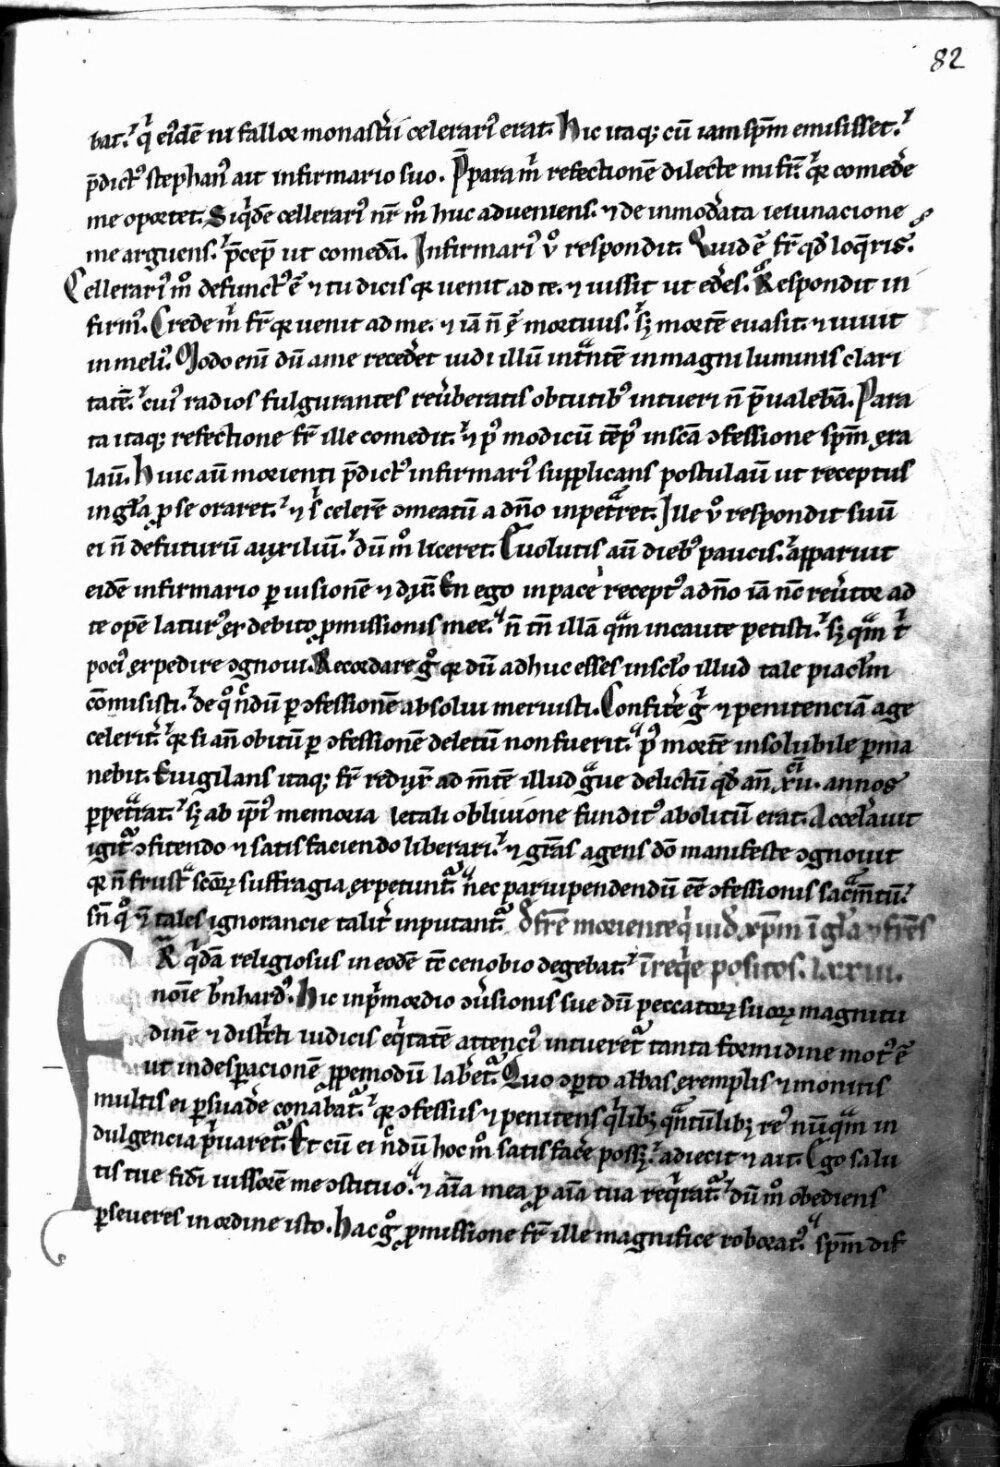 82
bat. q̾ eidē tūc fallax monast̾ii celerari᷒ erat. Hic itaq; cū iam sp̄m emisisset.
p̄dict᷒ stephan᷒ ait infirmario suo. P̄para m̾ refectionē dilecte mi fr̄. q̾ comed̾e
me oportet. Siq̾dē cellerari᷒ nr̄ m̊ huc adueniens. ⁊ de inmod̾ata ieiunacione
me arguens. p̄cep̄ ut comedā. Infirmari᷒ v̊ respondit. Quid ē fr̄ qd̾ loq̾ris.
Cellerari᷒ m̊ defunct᷒ ē ⁊ tu dicis qr uenit ad te. ⁊ iussit ut ed̾es. Respondit in
firm᷒. Crede m̾ fr̄ qr uenit ad me. ⁊ iā n̄ ē mortuus. sꝫ mortē euasit. ⁊ uiuit
in meli᷒. Modo eni᷒ dū a me reced̾et uidi illū int̾ntē in magni luminis clari
tatē. cui᷒ radios fulgurantes reu̾beratis obtutib᷒ intueri n̄ p̄ualebā. Para
ta itaq; refectione fr̄ ille comedit. ⁊ p᷒ modicū tēp᷒ in sc̄a ɔfessione sp̄m exa
lauͥ. Huic aūt morienti p̄dict᷒ infirmari᷒ supplicans postulauͥ ut receptus
in gl̄a ꝑ se oraret. ⁊ s̾ celerē ɔmeatū a dn̄o inpet̾ret. Ille v̊ respondit suū
ei n̄ defuturū auxiliū. dū m̊ liceret. Euolutis aūt dieb᷒ paucis. apparuit
eidē infirmario ꝑ uisionē ⁊ dix̄. En ego in pace recept᷒ a dn̄o iā nc̄ reu̾tor ad
te opē latur᷒ ex debito ꝓmissionis mee. n̄ tn̄ illā qͣm incaute petisti. sꝫ qͣm t̾
poci᷒ expedire ɔgnoui. Recordare g̊ qr dū adhuc esses in sc̄lo illud tale piacl̄m
cōmisisti. de q̊ n̄dū ꝑ ɔfessionē absolui meruisti. Confite᷒ g̾ ⁊ penitenciā age
celerit̾. qr si an̄ obitū ꝑ ɔfessionē deletū non fuerit. p᷒ mortē insolubile ꝑma
nebit. Euigilans itaq; fr̄ redux̄ ad m̄tē illud gͣue delictū qd̾ an̄ xii. annos
ꝑpet̾rat. sꝫ ab ip̄i᷒ memoria letali obliuione fundit᷒ abolitū erat. Accel̾auit
igit᷒ ɔfitendo ⁊ satisfaciendo liberari. ⁊ gr̄as agens dō manifeste ɔgnouit
qr n̄ frustͣ sc̄orꝝ suffragia expetunt᷒. nec paruipendendū eē ɔfessionis sacͣm̄tū.
sn̄ q̊ ⁊ tales ignorancie talit̾ inputant᷒. D̾ fr̄e moriente q̾ uid̾ xp̄m ī gl̄a ⁊ fr̄es
FR̄ q̾dā religiosus in eodē tc̄ cenobio degebat. ī req̾e positos. lxxiii.
noīe b̾nhard᷒. Hic in p̾mordio ɔu̾sionis sue dū peccatorꝝ suorꝝ magnitu
dinē ⁊ distͥcti iudicis eq̾tatē attenci᷒ intueret᷒ tanta formidine mot᷒ ē
ut in desꝑacionē ꝓpemodū labet᷒. Quo ɔꝑto abbas exemplis ⁊ monitis
multis ei ꝑsuad̾e conabat᷒. qr ɔfessus ⁊ penitens q̾libꝫ qͣntūlibꝫ re᷒ nūqͣm in
dulgencia p̾uaret᷒. Et cū ei n̾dū hoc m̊ satisfac̾e possꝫ. adiecit ⁊ ait. Ego salu
tis tue fidi᷒ iussorē me ɔstituo. ⁊ aīa mea ꝓ aīa tua req̾rat᷒. dū m̊ obediens
ꝑseueres in ordine isto. Hac g̊ ꝓmissione fr̄ ille magnifice roborat᷒. sp̄m dif